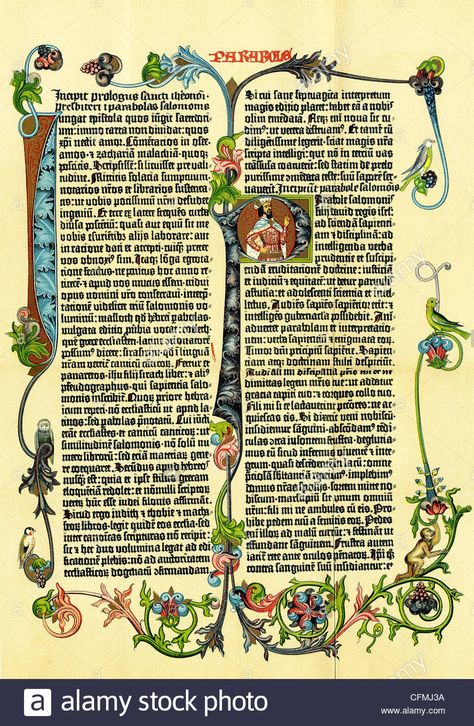 PARABOLE
Incipit prologus sancti iheronimi
presbiteri i parabolas salomonis
Iungat epistola quos iūgit sacerdoti-
um: immo carta non dividat: quos
xp̄i nectit amor. Cōmētarios in osee.
amos. ⁊ zachariā malachiā. quoq;
poscitis. Scripsissē: si licuisset pre vali-
tudine. Mittitis solacia sumptuum.
notarios nr̄os et librarios sustenta-
tis: ut vobis potissimū nr̄m desudet
ingeniū. Et ecce ex latere frequēs turba
diversa poscētiū: quasi aut equū sit me
vobis esurientibꝫ alijs laborare: aut
in ratione dati et accepti. cuiq; preter
vos obnoxiꝰ sim. Itaq; lōga egrotatione
fractus. ne penitus hoc anno reticerē
et apud vos mutus essem. tridui
opus nomini vr̄o consecravi. interp̄-
tationē videlicet triū salomonis vo-
luminū: masloth qd̄ hebrei parabolas.
vulgata editio ꝓverbia vocat: coeleth.
quē grece ecclesiasten. latine cōcionatorē
possumꝰ dicere: sirasirim. qd̄ ī linguā
nr̄am vertit canticū cāticoꝝ. Fertur et
panaretos. ihū filij sirach liber: ⁊ aliꝰ
pseudographus. qui sapientia salo-
monis inscribit. Quoꝝ priorē hebra-
icum reperi. nō ecclesiasticū ut apud la-
tinos: sed parabolas p̄notatū. Cui iūcti
erāt ecclesiastes. et canticū canticoꝝ: ut
similitudinē salomonis. nō solū nu-
mero librorū: sed etiā materiaꝝ gene-
re coequaret. Secūdus apud hebreos
nusq̄ est: quia et ipse stilus grecam
eloquentiā redolet: et nōnulli scriptoꝝ
veteꝝ hūc esse iudei filonis affirmāt.
Sicud ergo iudith ⁊ thobie ⁊ macha-
beoꝝ libros. legit quidē eos eccl̄ia. sed
inter canonicas scripturas nō recipit:
sic ⁊ hec duo volumina legat ad edi-
ficationē plebis: nō ad auctoritatem
ecclesiasticoꝝ dogmatū ɔfirmandam
Si cui sane septuaginta interpretum
magis editio placet: habet eā a nobis
olim emēdatā. Neq; em̄ nova sic cu-
dimꝰ: ut vetera destruamꝰ. Et tamē cū
diligentissime legerit. sciat magis nr̄a
scripta intelligi: que nō in terciū vas
transfusa coacuerīt: sed statim de prelo
purissime cōmendata teste: suū sapo-
rē servaverīt. Incipiunt parabole salomōis
Parabole salomonis
filii david regis isrl̄:
ad sciendā sapienti-
am ⁊ disciplinā: ad
intelligenda verba
prudentie et suscipi-
endā eruditionē doctrine: iusticiā
et iudiciū ⁊ equitatē: ut detur parvulis
astutia: et adolescenti sciencia et in-
tellectus. Audiēs sapiēs sapiētior erit: et
intelligēs gubernacula possidebit. An-
imadvertet parabolam et interpretatio-
nem: verba sapientiū ⁊ enigmata eoꝝ.
Timor dn̄i principiū sapiētie. Sapien-
tiam atq; doctrinam stulti despiciūt.
Audi fili mi disciplinā pr̄is tui et ne
dimittas legem mr̄is tue: ut addatur
gracia capiti tuo: ⁊ torques collo tuo.
Fili mi si te lactaverint pc̄cōres: ne ac-
quiescas eis. Si dixerit veni nobiscū.
insidiemur sāguini. abscōdamꝰ tedi-
culas ɔtra insontem frustra. deglutia-
mꝰ eū sicud infernꝰ viventē ⁊ integrum.
quasi descēdentē in lacū: omnē p̄cio-
sā substantiā reperiemꝰ. implebimꝰ
domus nr̄as spolijs. sortem mitte no-
biscum. marsupiū sit unum omniū
nr̄m: fili mi ne ambules cū eis. Pro-
hibe pedem tuū a semitis eoꝝ. Pedes
em̄ illoꝝ ad malū currūt: ⁊ festināt ut
effundant sāguinem. Frustra autem
iacit rete ante oculos pēnatoꝝ. Ipi̅ q̄ꝫ
contra sanguinē suū insidiantur: et
alamy
alamy stock photo
CFMJ3A
www.alamy.com